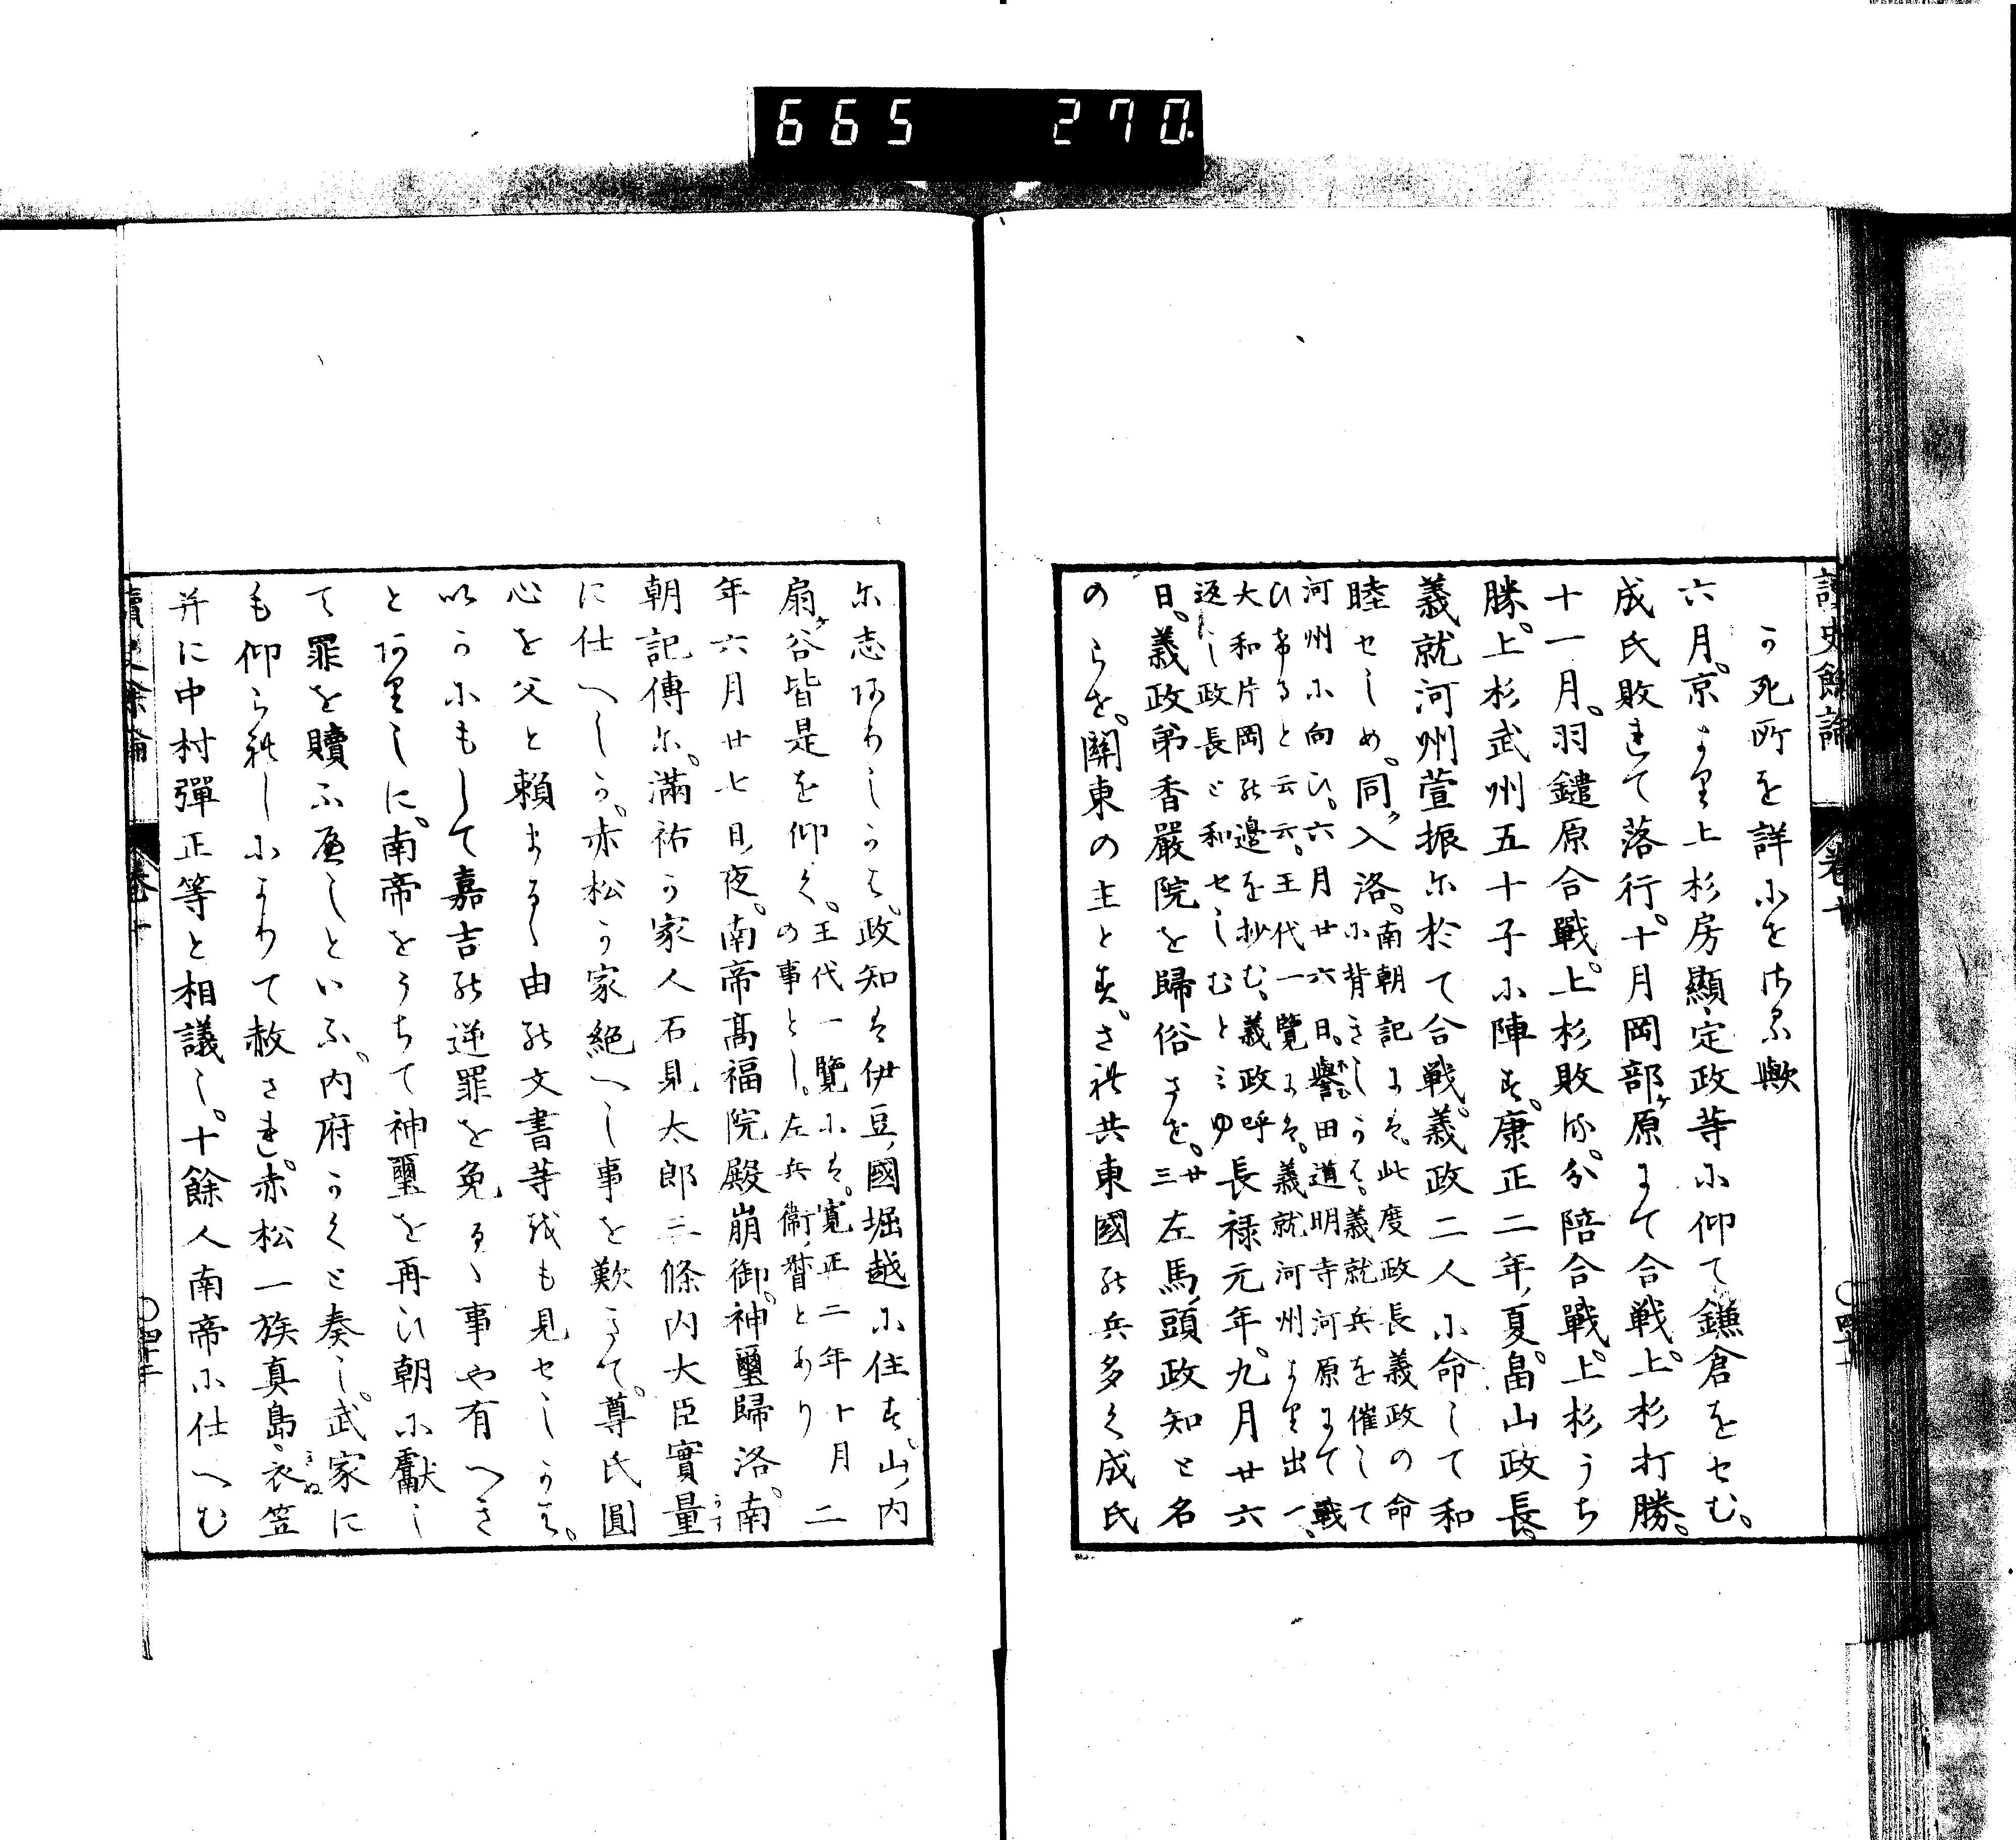 665 270
讀史餘論 卷十
か死所を詳にせさる歟
六月。京より上杉房顯、定政等に仰て鎌倉をせむ。
成氏敗れて落行。十月岡部ヶ原にて合戦。上杉打勝。
十一月。羽鑓原合戰。上杉敗る。分陪合戰。上杉うち
勝。上杉武州五十子に陣す。康正二年、夏。畠山政長。
義就河州萱振に於て合戦。義政二人に命して和
睦せしめ。同ク入洛。南朝記には。此度政長義政の命
に背きしかは。義就兵を催して
河州に向ひ。六月廿六日。譽田道明寺河原にて戦
ひ希ると云云。王代一覽には。義就河州より出一、
大和片岡の邊を抄む、義政呼
返し政長と和せしむとみゆ
長禄元年。九月廿六
日。義政第香嚴院を歸俗さす。廿三
左馬、頭政知と名
のらす。關東の主とす。され共東國の兵多く成氏
に志ありしかは。政知は伊豆、國堀越に住す。山、内
扇ヶ谷皆是を仰く。王代一覽には。寛正二年十月
の事とし。左兵衞、督とあり
二
年六月廿七日、夜。南帝髙福院殿崩御。神璽歸洛。南
朝記傳に。滿祐か家人石見太郎三條内大臣實量
に仕へしか。赤松か家絶へし事を歎きて。尊氏圓
心を父と頼まるゝ由の文書等をも見せしかは。
いかにもして嘉吉の逆罪を免るゝ事や有へき
とありしに。南帝をうちて神璽を再ひ朝に獻し
て罪を贖ふへしといふ。内府かくと奏し。武家に
も仰られしによりて赦さる。赤松一族真島、衣笠
并に中村彈正等と相議し。十餘人南帝に仕へむ
讀史餘論 卷十